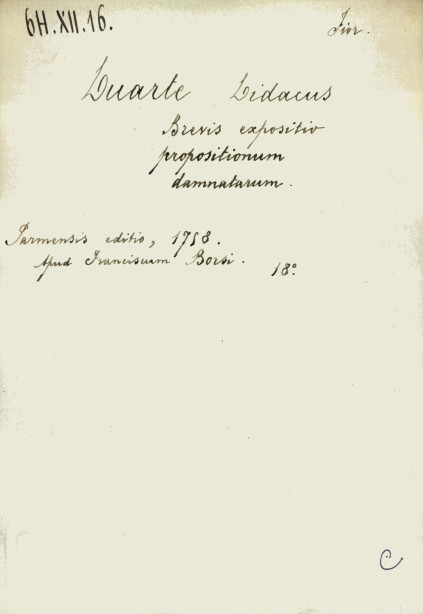 6H.XII.16.
Jur.
Duarte Didacus
Brevis expositio
propositionum
damnatarum.
Parmensis editio, 1758.
Apud Franciscum Borsi.
18°
C